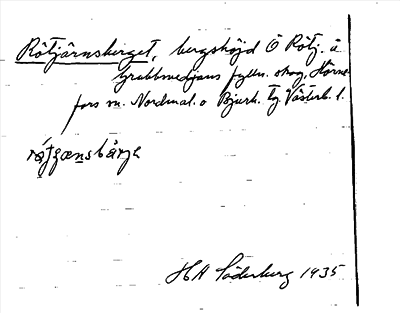 Rötjärnsberget, bergshöjd Ö Rötj. å
Grubbmedjans fylln. skog, Hörne-
fors sn. Nordmal. o Bjurh. tg. Västerb. l.
H A Söderberg 1935